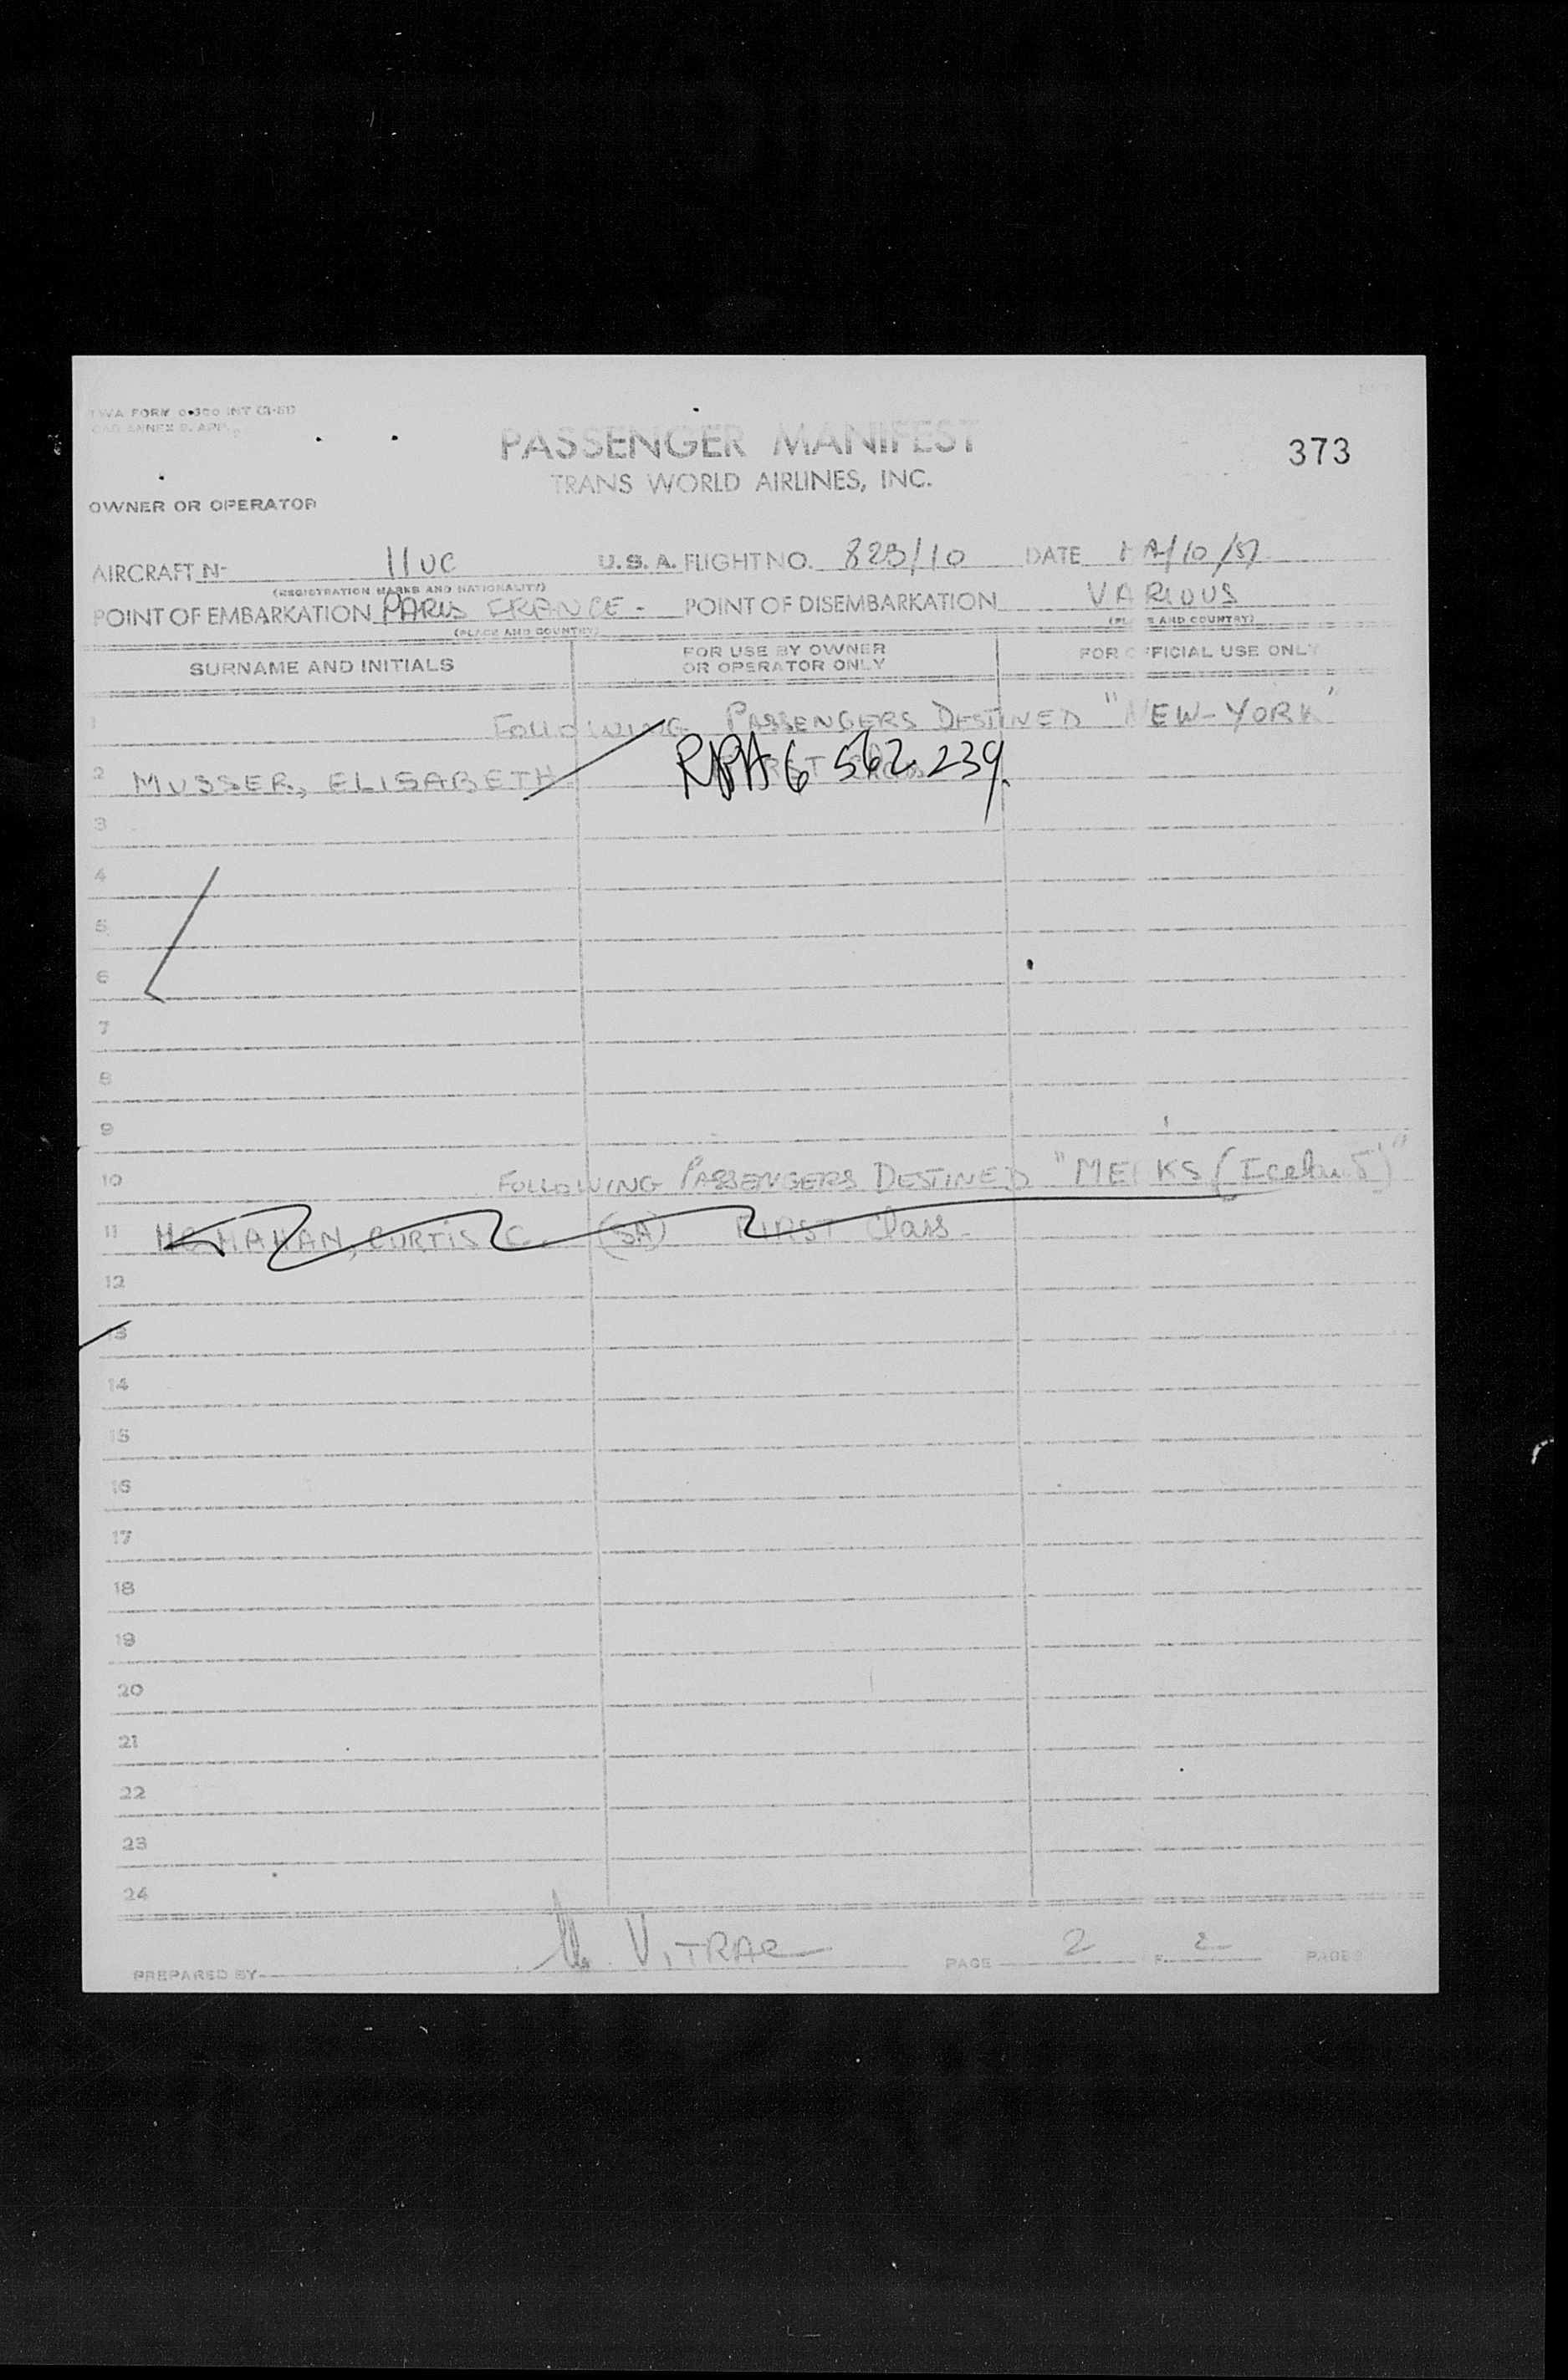 TWA FORM 0-300 INT (3-51)
CAO ANNEX 9. APP.
PASSENGER MANIFEST
373
TRANS WORLD AIRLINES, INC.
OWNER OR OPERATOR
AIRCRAFT N- 110C U.S.A. FLIGHT NO. 823/10 DATE /10/51
(REGISTRATION MARKS AND NATIONALITY)
POINT OF EMBARKATION PARIS FRANCE - POINT OF DISEMBARKATION VARIOUS
(PLACE AND COUNTRY) (PLACE AND COUNTRY)
SURNAME AND INITIALS FOR USE BY OWNER OR OPERATOR ONLY FOR OFFICIAL USE ONLY
1 FOLLOWING PASSENGERS DESTINED "NEW-YORK"
2 MUSSER, ELISABETH 6 562 239
3
4
5
6
7
8
9
10 FOLLOWING PASSENGERS DESTINED "MEEKS (Iceland)"
11 MCMAHAN, CURTIS C. (SA) FIRST Class -
12
13
14
15
16
17
18
19
20
21
22
23
24
PREPARED BY M. VITRAC PAGE 2 F 2 PAGES